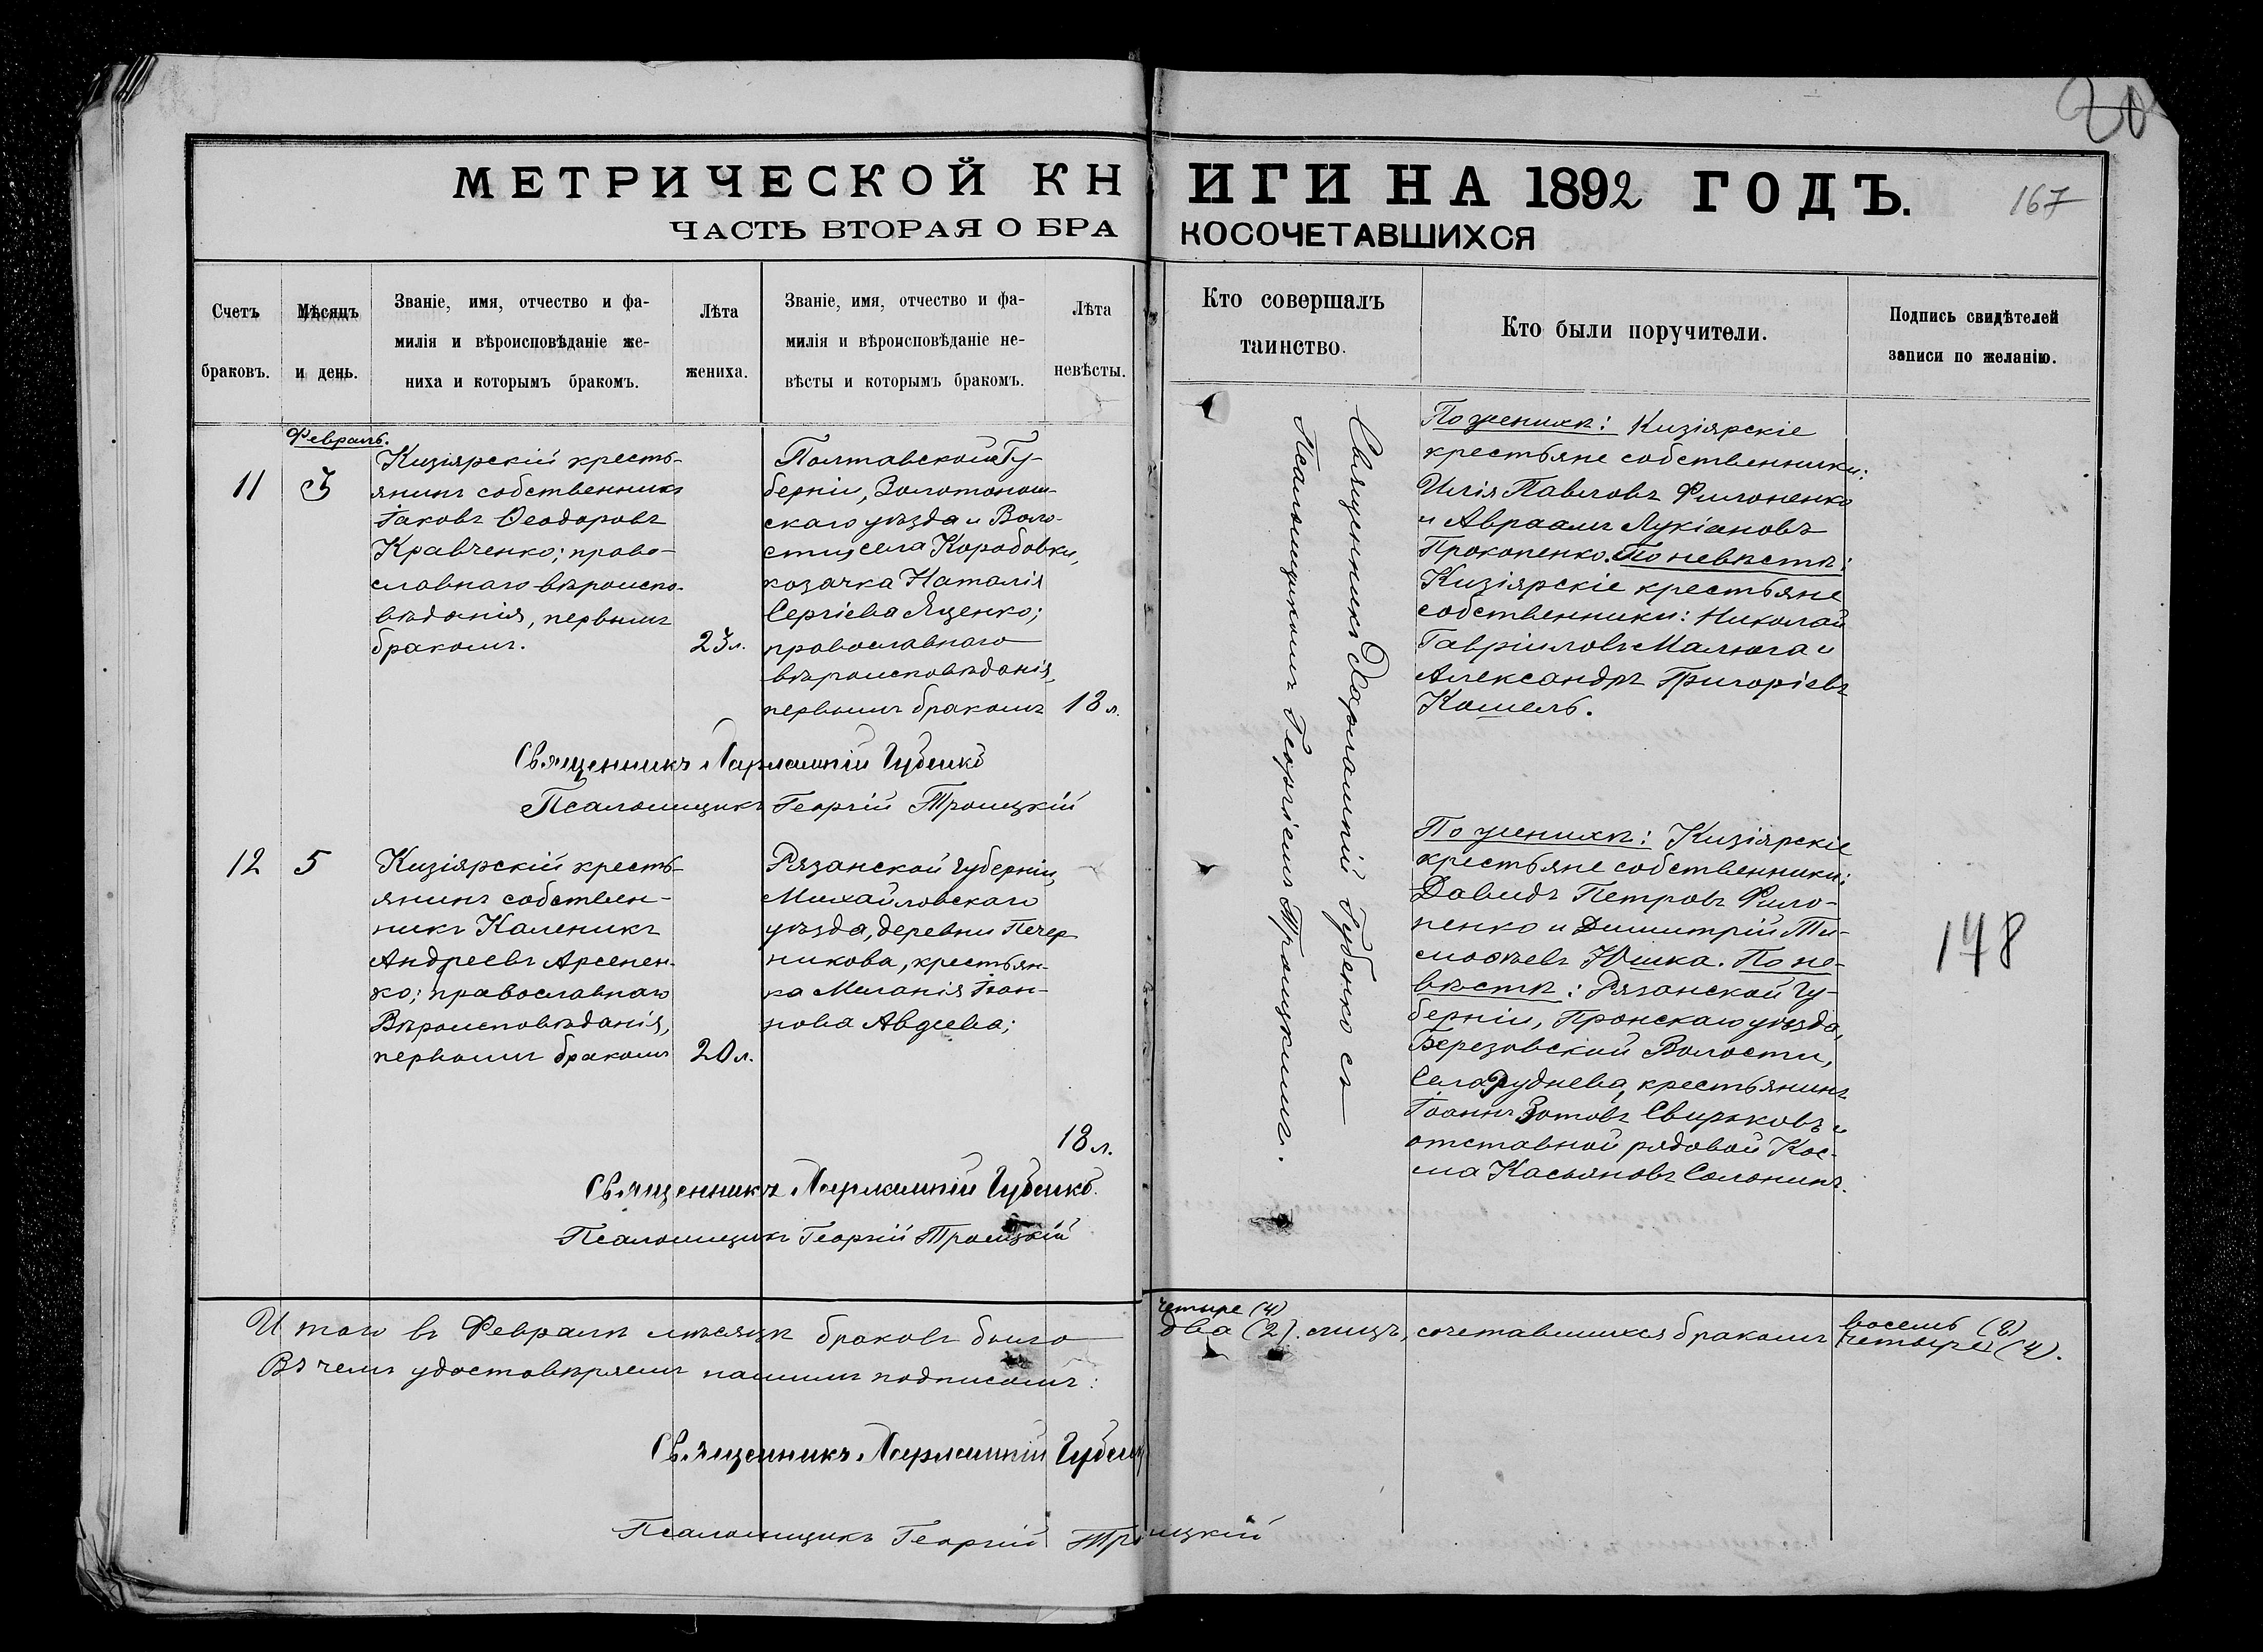 20
МЕТРИЧЕСКОЙ КНИГИ НА 1892 ГОДЪ.
167
ЧАСТЬ ВТОРАЯ О БРАКОСОЧЕТАВШИХСЯ
Счетъ
браковъ.
Мѣсяцъ
и день.
Званіе, имя, отчество и фа-
милія и вѣроисповѣданіе же-
ниха и которымъ бракомъ.
Лѣта
жениха.
Званіе, имя, отчество и фа-
милія и вѣроисповѣданіе не-
вѣсты и которымъ бракомъ.
Лѣта
невѣсты.
Кто совершалъ
таинство.
Кто были поручители.
Подпись свидѣтелей
записи по желанію.
Февраль.
11
5
Кизіярскій кресть-
янинъ собственникъ
Іаковъ Ѳеодоровъ
Кравченко; право-
славнаго вѣроиспо-
вѣданія, первымъ
бракомъ.
23 л.
Полтавской Гу-
берніи, Золотонош-
скаго уѣзда и Воло-
сти, села Коробовки,
козачка Наталія
Сергіева Яценко;
православнаго
вѣроисповѣданія,
первымъ бракомъ
18 л.
Священникъ Харлампій Губенко
Псаломщикъ Георгій Троицкій
Священникъ Харлампій Губенко съ
Псаломщикомъ Георгіемъ Троицкимъ.
По женихѣ: Кизіярскіе
крестьяне собственники:
Илія Павловъ Филоненко
и Авраамъ Лукіановъ
Прокопенко. По невѣстѣ:
Кизіярскіе крестьяне
собственники: Николай
Гавріиловъ Малюга и
Александръ Григоріевъ
Кошель.
12
5
Кизіярскій кресть-
янинъ собствен-
никъ Каленикъ
Андреевъ Арсенен-
ко; православнаго
Вѣроисповѣданія,
первымъ бракомъ
20 л.
Рязанской губерніи,
Михайловскаго
уѣзда, деревни Печер
никова, крестьян-
ка Меланія Іоан-
нова Авдеева;
18 л.
Священникъ Харлампій Губенко.
Псаломщикъ Георгій Троицкій
По женихѣ: Кизіярскіе
крестьяне собственники:
Давидъ Петровъ Фило-
ненко и Димитрій Ти-
моѳѣевъ Юшка. По не-
вѣстѣ: Рязанской гу-
берніи, Пронскаго уѣзда,
Березовской Волости,
Села Руднева, крестьянинъ
Іоаннъ Зотовъ Свирьковъ и
отставной рядовой Кос-
ма Касьяновъ Солонинъ.
148
четыре (4)
восемь (8)
Итого въ Февралѣ мѣсяцѣ браковъ было два (2). лицъ, сочетавшихся бракомъ четыре (4).
Въ чемъ удостовѣряемъ нашимъ подписомъ:
Священникъ Харлампій Губенко
Псаломщикъ Георгій Троицкій